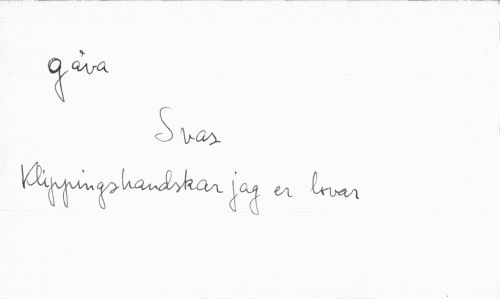 gåva
Svas
Klippingshandskar jag er lovar